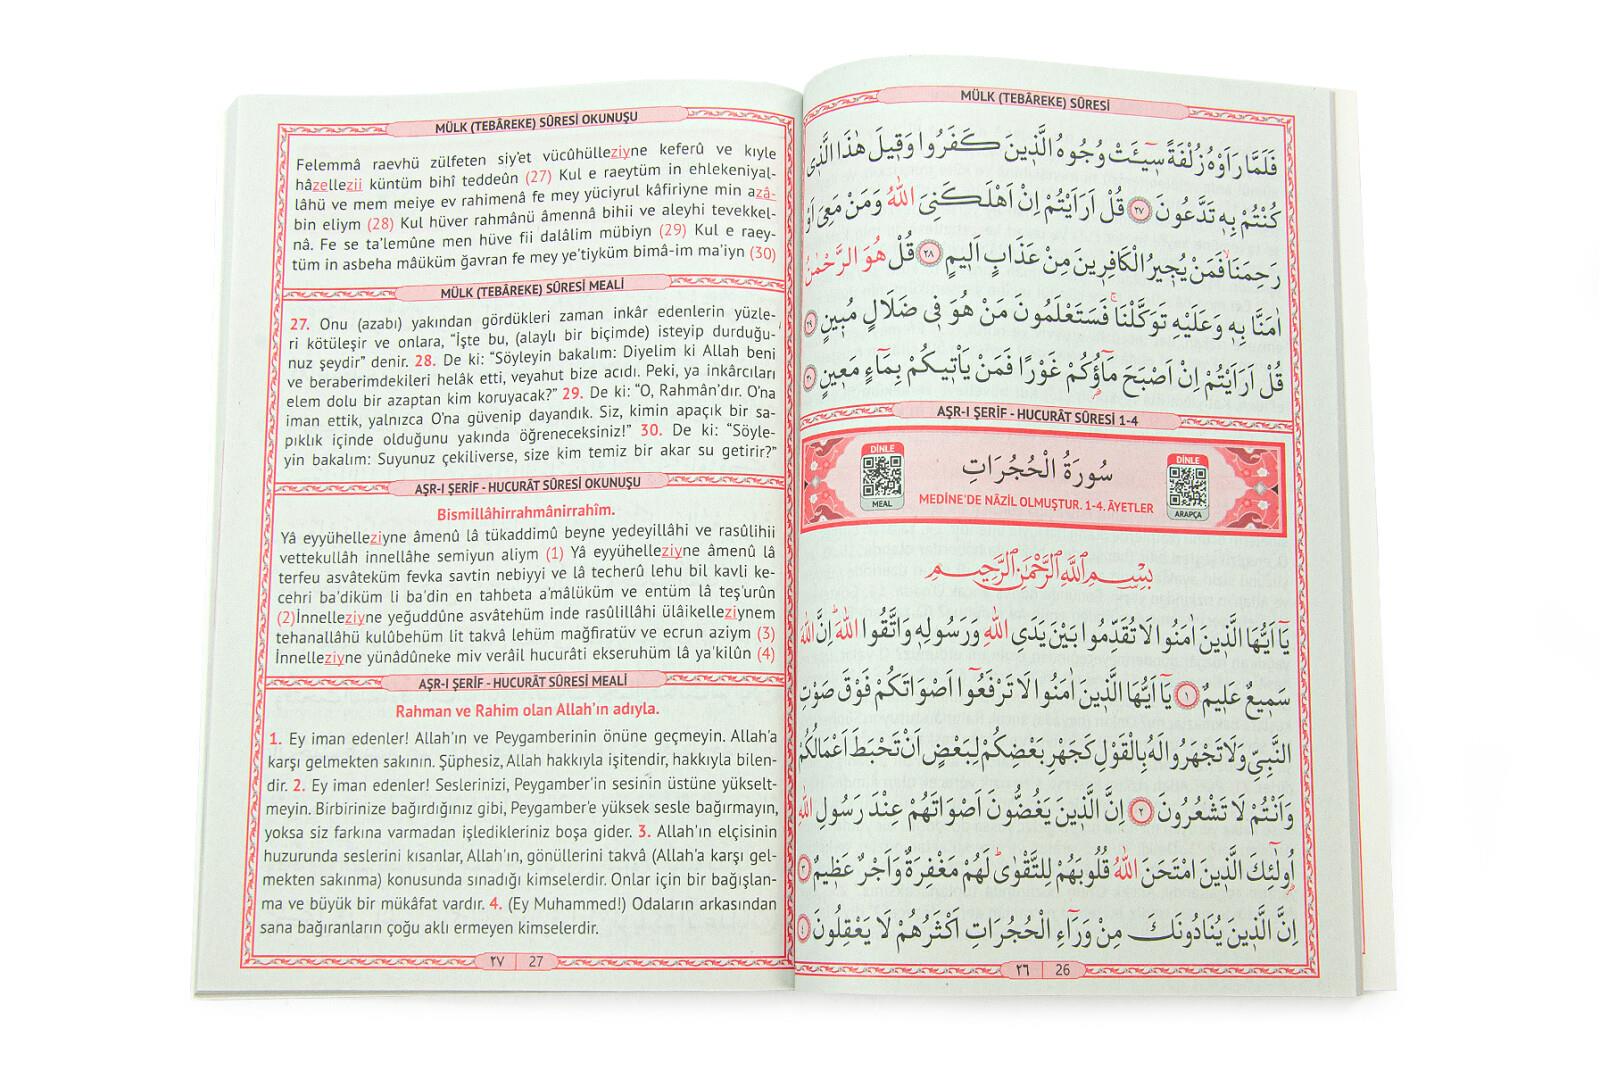 MÜLK (TEBÂREKE) SÛRESİ
فَلَمَّا رَاَوْهُ زُلْفَةً سٖٓيـَٔتْ وُجُوهُ الَّذٖينَ كَفَرُوا وَقٖيلَ هٰذَا الَّذٖى
كُنْتُمْ بِهٖ تَدَّعُونَ ﴿٢٧﴾ قُلْ اَرَاَيْتُمْ اِنْ اَهْلَكَنِىَ اللّٰهُ وَمَنْ مَعِىَ اَوْ
رَحِمَنَاۙ فَمَنْ يُجٖيرُ الْكَافِرٖينَ مِنْ عَذَابٍ اَلٖيمٍ ﴿٢٨﴾ قُلْ هُوَ الرَّحْمٰنُ
اٰمَنَّا بِهٖ وَعَلَيْهِ تَوَكَّلْنَاۚ فَسَتَعْلَمُونَ مَنْ هُوَ فٖى ضَلَالٍ مُبٖينٍ ﴿٢٩﴾
قُلْ اَرَاَيْتُمْ اِنْ اَصْبَحَ مَٓاؤُ۬كُمْ غَوْرًا فَمَنْ يَأْتٖيكُمْ بِمَٓاءٍ مَعٖينٍ ﴿٣٠﴾
AŞR-I ŞERİF - HUCURÂT SÛRESİ 1-4
DİNLE
MEAL
سُورَةُ الْحُجُرَاتِ
MEDİNE'DE NÂZİL OLMUŞTUR. 1-4. ÂYETLER
DİNLE
ARAPÇA
بِسْمِ اللّٰهِ الرَّحْمٰنِ الرَّحٖيمِ
يَٓا اَيُّهَا الَّذٖينَ اٰمَنُوا لَا تُقَدِّمُوا بَيْنَ يَدَىِ اللّٰهِ وَرَسُولِهٖ وَاتَّقُوا اللّٰهَؕ اِنَّ اللّٰهَ
سَمٖيعٌ عَلٖيمٌ ﴿١﴾ يَٓا اَيُّهَا الَّذٖينَ اٰمَنُوا لَا تَرْفَعُٓوا اَصْوَاتَكُمْ فَوْقَ صَوْتِ
النَّبِىِّ وَلَا تَجْهَرُوا لَهُ بِالْقَوْلِ كَجَهْرِ بَعْضِكُمْ لِبَعْضٍ اَنْ تَحْبَطَ اَعْمَالُكُمْ
وَاَنْتُمْ لَا تَشْعُرُونَ ﴿٢﴾ اِنَّ الَّذٖينَ يَغُضُّونَ اَصْوَاتَهُمْ عِنْدَ رَسُولِ اللّٰهِ
اُولٰٓئِكَ الَّذٖينَ امْتَحَنَ اللّٰهُ قُلُوبَهُمْ لِلتَّقْوٰىؕ لَهُمْ مَغْفِرَةٌ وَاَجْرٌ عَظٖيمٌ ﴿٣﴾
اِنَّ الَّذٖينَ يُنَادُونَكَ مِنْ وَرَٓاءِ الْحُجُرَاتِ اَكْثَرُهُمْ لَا يَعْقِلُونَ ﴿٤﴾
٢٦ 26
MÜLK (TEBÂREKE) SÛRESİ OKUNUŞU
Felemmâ raevhü zülfeten siy'et vücûhülleziyne keferû ve kıyle
hâzellezii küntüm bihî teddeûn (27) Kul e raeytüm in ehlekeniyal-
lâhü ve mem meiye ev rahimenâ fe mey yüciyrul kâfiriyne min azâ-
bin eliym (28) Kul hüver rahmânü âmennâ bihii ve aleyhi tevekkel-
nâ. Fe se ta'lemûne men hüve fii dalâlim mübiyn (29) Kul e raey-
tüm in asbeha mâüküm ğavran fe mey ye'tiyküm bimâ-im ma'iyn (30)
MÜLK (TEBÂREKE) SÛRESİ MEALİ
27. Onu (azabı) yakından gördükleri zaman inkâr edenlerin yüzle-
ri kötüleşir ve onlara, "İşte bu, (alaylı bir biçimde) isteyip durduğu-
nuz şeydir" denir. 28. De ki: "Söyleyin bakalım: Diyelim ki Allah beni
ve beraberimdekileri helâk etti, veyahut bize acıdı. Peki, ya inkârcıları
elem dolu bir azaptan kim koruyacak?" 29. De ki: "O, Rahmân'dır. O'na
iman ettik, yalnızca O'na güvenip dayandık. Siz, kimin apaçık bir sa-
pıklık içinde olduğunu yakında öğreneceksiniz!" 30. De ki: "Söyle-
yin bakalım: Suyunuz çekiliverse, size kim temiz bir akar su getirir?"
AŞR-I ŞERİF - HUCURÂT SÛRESİ OKUNUŞU
Bismillâhirrahmânirrahîm.
Yâ eyyühelleziyne âmenû lâ tükaddimû beyne yedeyillâhi ve rasûlihii
vettekullâh innellâhe semiyun aliym (1) Yâ eyyühelleziyne âmenû lâ
terfeu asvâteküm fevka savtin nebiyyi ve lâ techerû lehu bil kavli ke-
cehri ba'diküm li ba'din en tahbeta a'mâlüküm ve entüm lâ teş'urûn
(2)İnnelleziyne yeğuddûne asvâtehüm inde rasûlillâhi ülâikelleziynem
tehanallâhü kulûbehüm lit takvâ lehüm mağfiratüv ve ecrun aziym (3)
İnnelleziyne yünâdûneke miv verâil hucurâti ekseruhüm lâ ya'kilûn (4)
AŞR-I ŞERİF - HUCURÂT SÛRESİ MEALİ
Rahman ve Rahim olan Allah'ın adıyla.
1. Ey iman edenler! Allah'ın ve Peygamberinin önüne geçmeyin. Allah'a
karşı gelmekten sakının. Şüphesiz, Allah hakkıyla işitendir, hakkıyla bilen-
dir. 2. Ey iman edenler! Seslerinizi, Peygamber'in sesinin üstüne yükselt-
meyin. Birbirinize bağırdığınız gibi, Peygamber'e yüksek sesle bağırmayın,
yoksa siz farkına varmadan işledikleriniz boşa gider. 3. Allah'ın elçisinin
huzurunda seslerini kısanlar, Allah'ın, gönüllerini takvâ (Allah'a karşı gel-
mekten sakınma) konusunda sınadığı kimselerdir. Onlar için bir bağışlan-
ma ve büyük bir mükâfat vardır. 4. (Ey Muhammed!) Odaların arkasından
sana bağıranların çoğu aklı ermeyen kimselerdir.
٢٧ 27